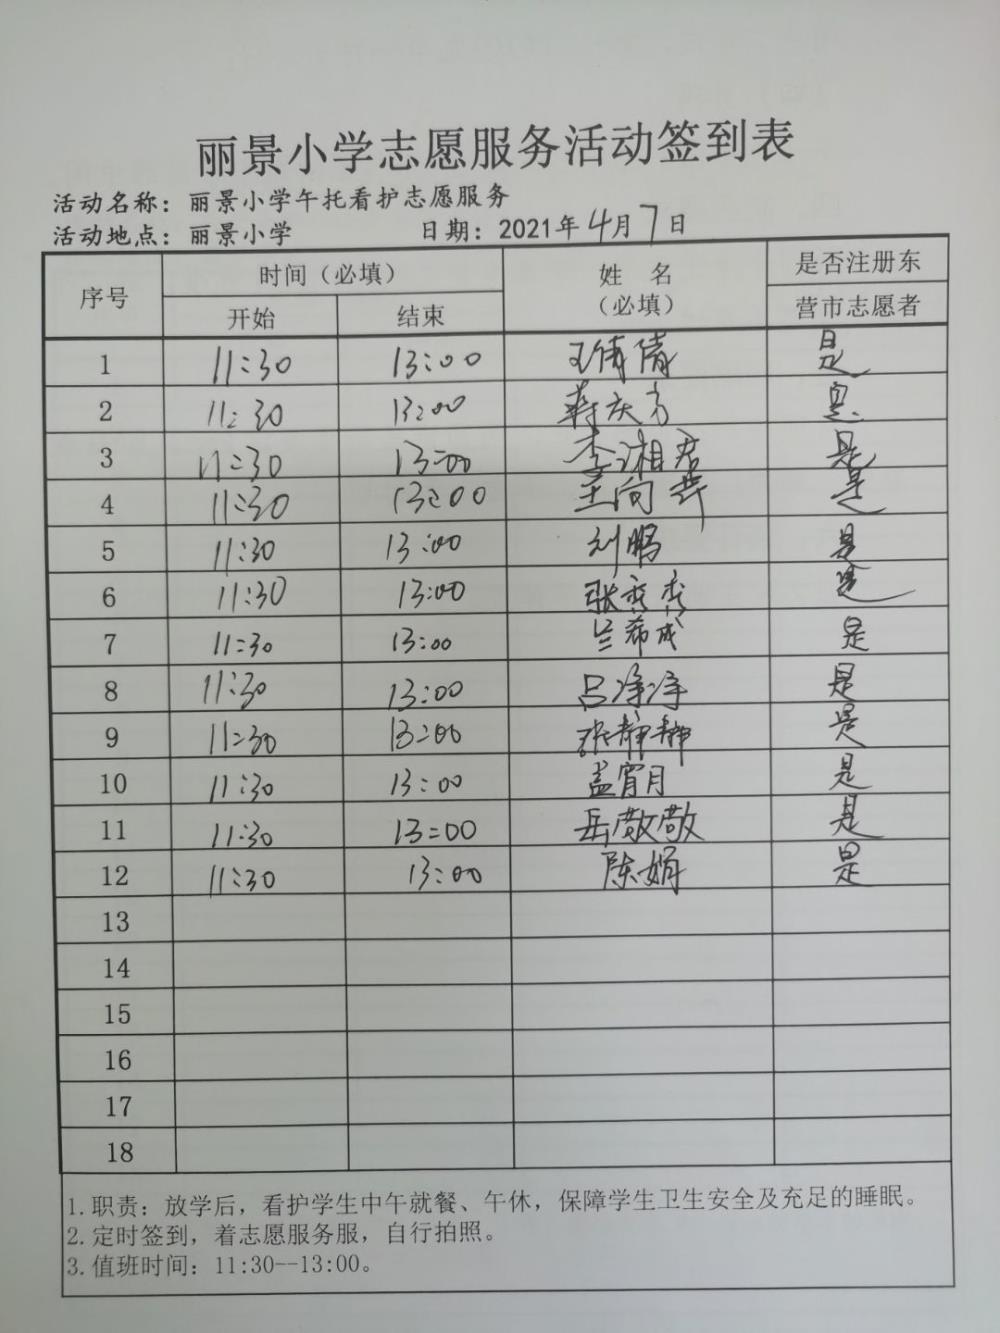 丽景小学志愿服务活动签到表
活动名称：丽景小学午托看护志愿服务
活动地点：丽景小学 日期：2021年4月7日
序号 时间（必填） 姓 名（必填） 是否注册东营市志愿者
开始 结束
1 11:30 13:00 王倩倩 是
2 11:30 13:00 蒋庆 是
3 11:30 13:00 李湘君 是
4 11:30 13:00 王向 是
5 11:30 13:00 刘鹏 是
6 11:30 13:00 张秀秀 是
7 11:30 13:00 兰希成 是
8 11:30 13:00 吕净净 是
9 11:30 13:00 张静静 是
10 11:30 13:00 孟宵月 是
11 11:30 13:00 岳敬敬 是
12 11:30 13:00 陈娟 是
13
14
15
16
17
18
1.职责：放学后，看护学生中午就餐、午休，保障学生卫生安全及充足的睡眠。
2.定时签到，着志愿服务服，自行拍照。
3.值班时间：11:30--13:00。